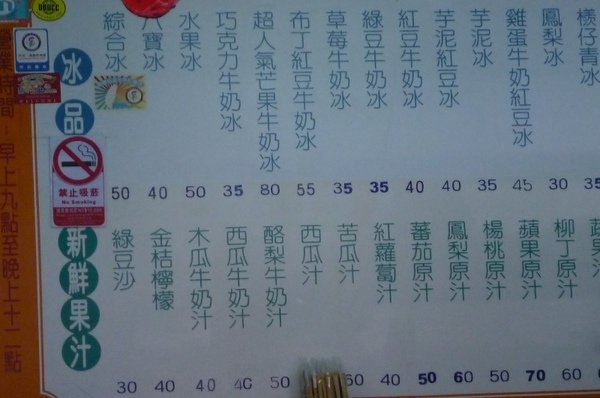 綜合冰
八寶冰
水果冰
巧克力牛奶冰
超人氣芒果牛奶冰
布丁紅豆牛奶冰
草莓牛奶冰
綠豆牛奶冰
紅豆牛奶冰
芋泥紅豆冰
芋泥冰
雞蛋牛奶紅豆冰
鳳梨冰
檨仔青冰
50 40 50 35 80 55 35 35 40 40 35 45 30 35
冰品
禁止吸菸
No Smoking
新鮮果汁
綠豆沙
金桔檸檬
木瓜牛奶汁
西瓜牛奶汁
酪梨牛奶汁
西瓜汁
苦瓜汁
紅蘿蔔汁
蕃茄原汁
鳳梨原汁
楊桃原汁
蘋果原汁
柳丁原汁
30 40 40 40 50 60 40 50 60 50 70 60
業時間：早上九點至晚上十二點